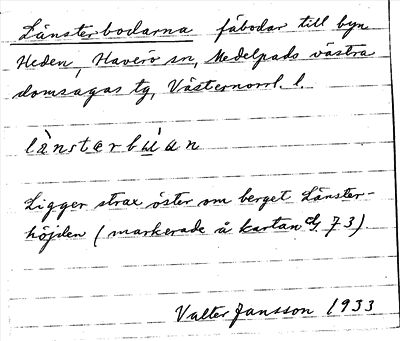 Länsterbodarna fäbodar till byn
Heden, Haverö sn, Medelpads västra
domsagas tg, Västernorrl. l.
länsterbu̲an
Ligger strax öster om berget Länster-
höjden (markerade å kartan 73).
Valter Jansson 1933